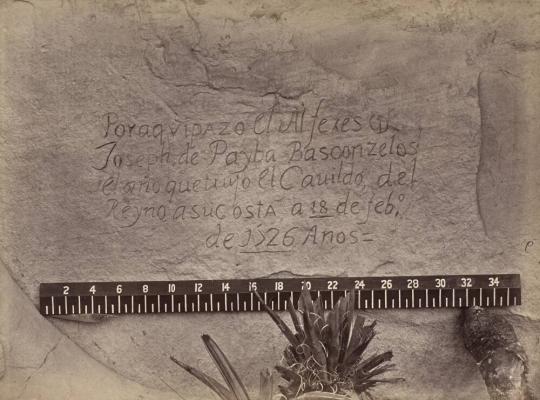 Por aqvi pazo el Alferes Dn
Joseph de Payba Basconzelos
el año que trujo el Cauildo del
Reyno a su costa a 18 de febo
de 1526 Años=
2 4 6 8 10 12 14 16 18 20 22 24 26 28 30 32 34